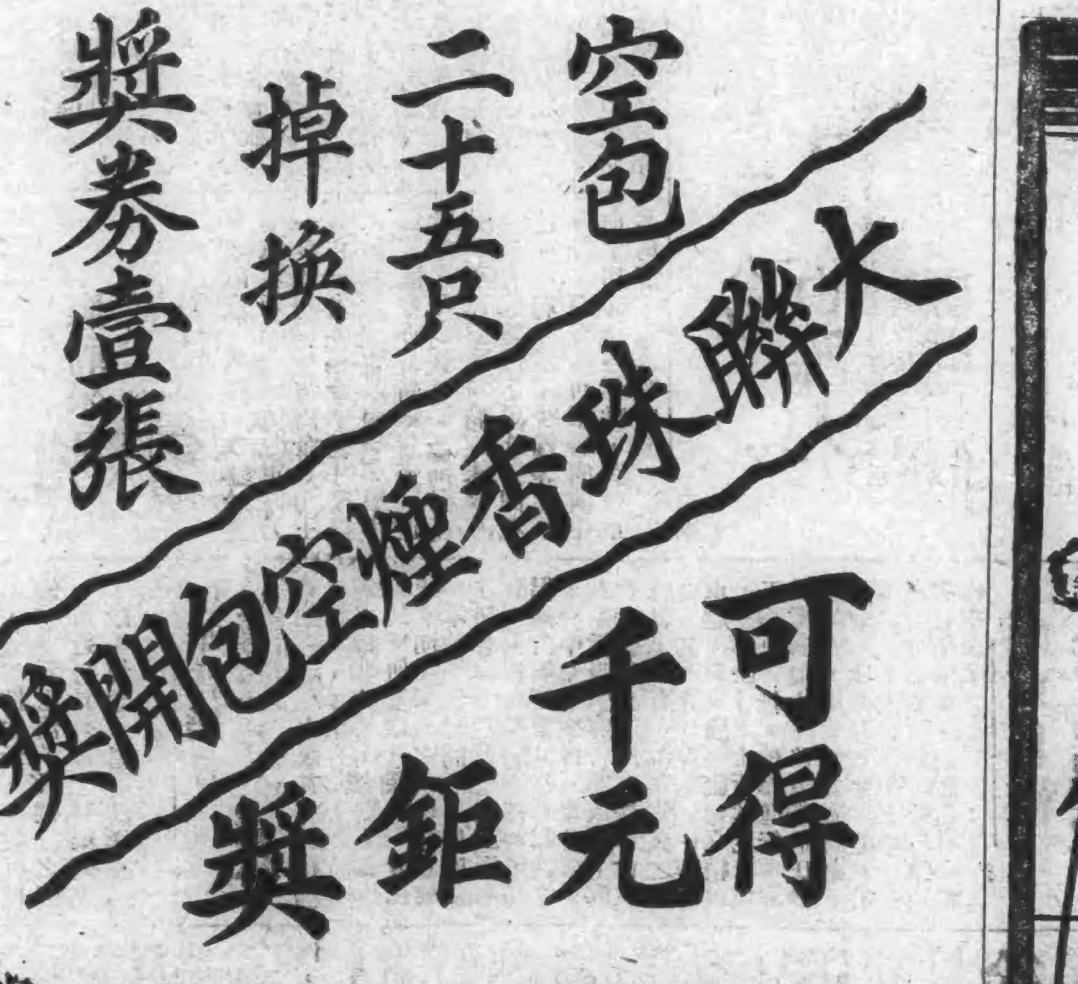 空包
二十五只
掉換
獎券壹張
大聯珠香煙空包開獎
可得
千元
鉅
獎